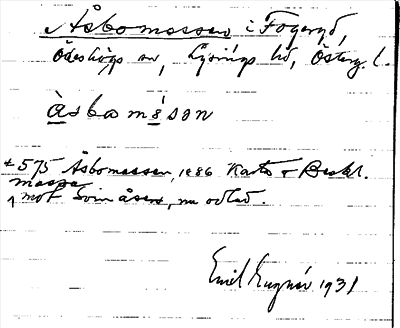 Åsbomossen i Fogeryd,
Ödeshögs sn, Lysings hd, Österg. l.
àsbamóson
+ 575 Åsbomossen, 1886 Karta + Beskr.
mosse
mot Svinåsen, nu odlad.
Emil 1931